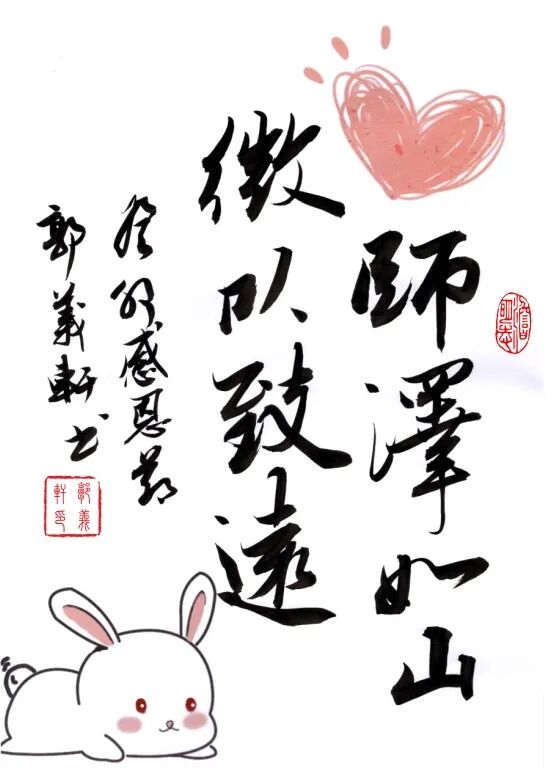 師澤如山
微以致遠
癸卯感恩節
郭義軒书
郭義
軒印